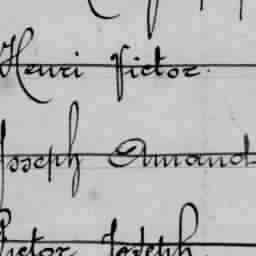 Henri Victor.
Joseph Amand
Victor Joseph